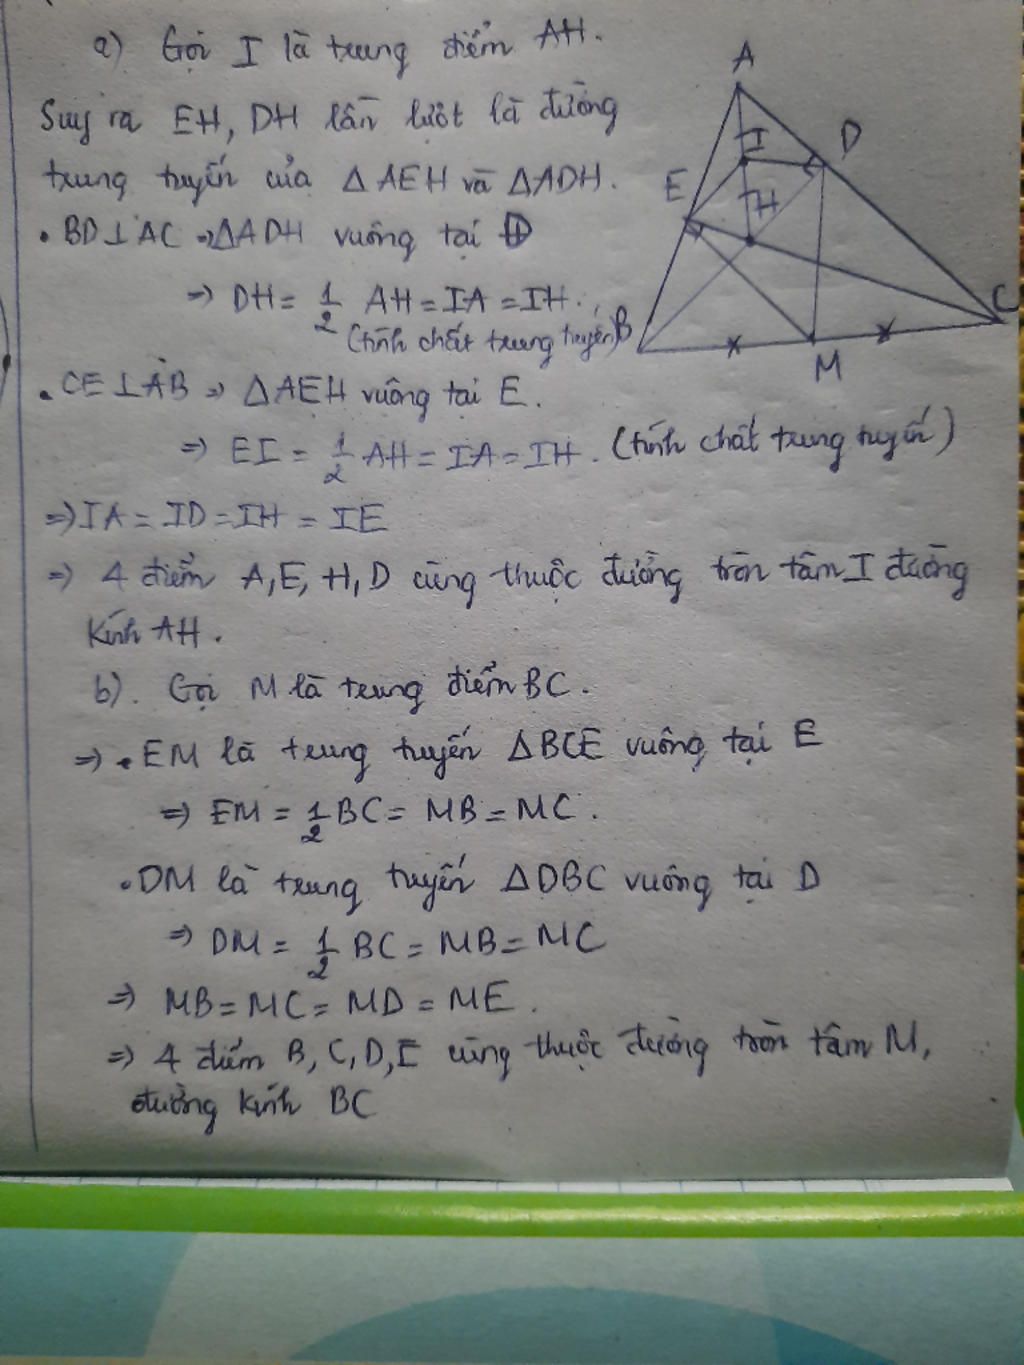 a) Gọi I là trung điểm AH.
Suy ra EH, DH lần lượt là đường
trung tuyến của ΔAEH và ΔADH.
• BD⊥AC ⇒ ΔADH vuông tại D
⇒ DH = 1/2 AH = IA = IH.
(tính chất trung tuyến)
• CE⊥AB ⇒ ΔAEH vuông tại E.
⇒ EI = 1/2 AH = IA = IH. (tính chất trung tuyến)
⇒ IA = ID = IH = IE
⇒ 4 điểm A, E, H, D cùng thuộc đường tròn tâm I đường
kính AH.
b). Gọi M là trung điểm BC.
⇒ • EM là trung tuyến ΔBCE vuông tại E
⇒ EM = 1/2 BC = MB = MC.
• DM là trung tuyến ΔDBC vuông tại D
⇒ DM = 1/2 BC = MB = MC
⇒ MB = MC = MD = ME.
⇒ 4 điểm B, C, D, E cùng thuộc đường tròn tâm M,
đường kính BC
A
I
D
E
H
C
B
M